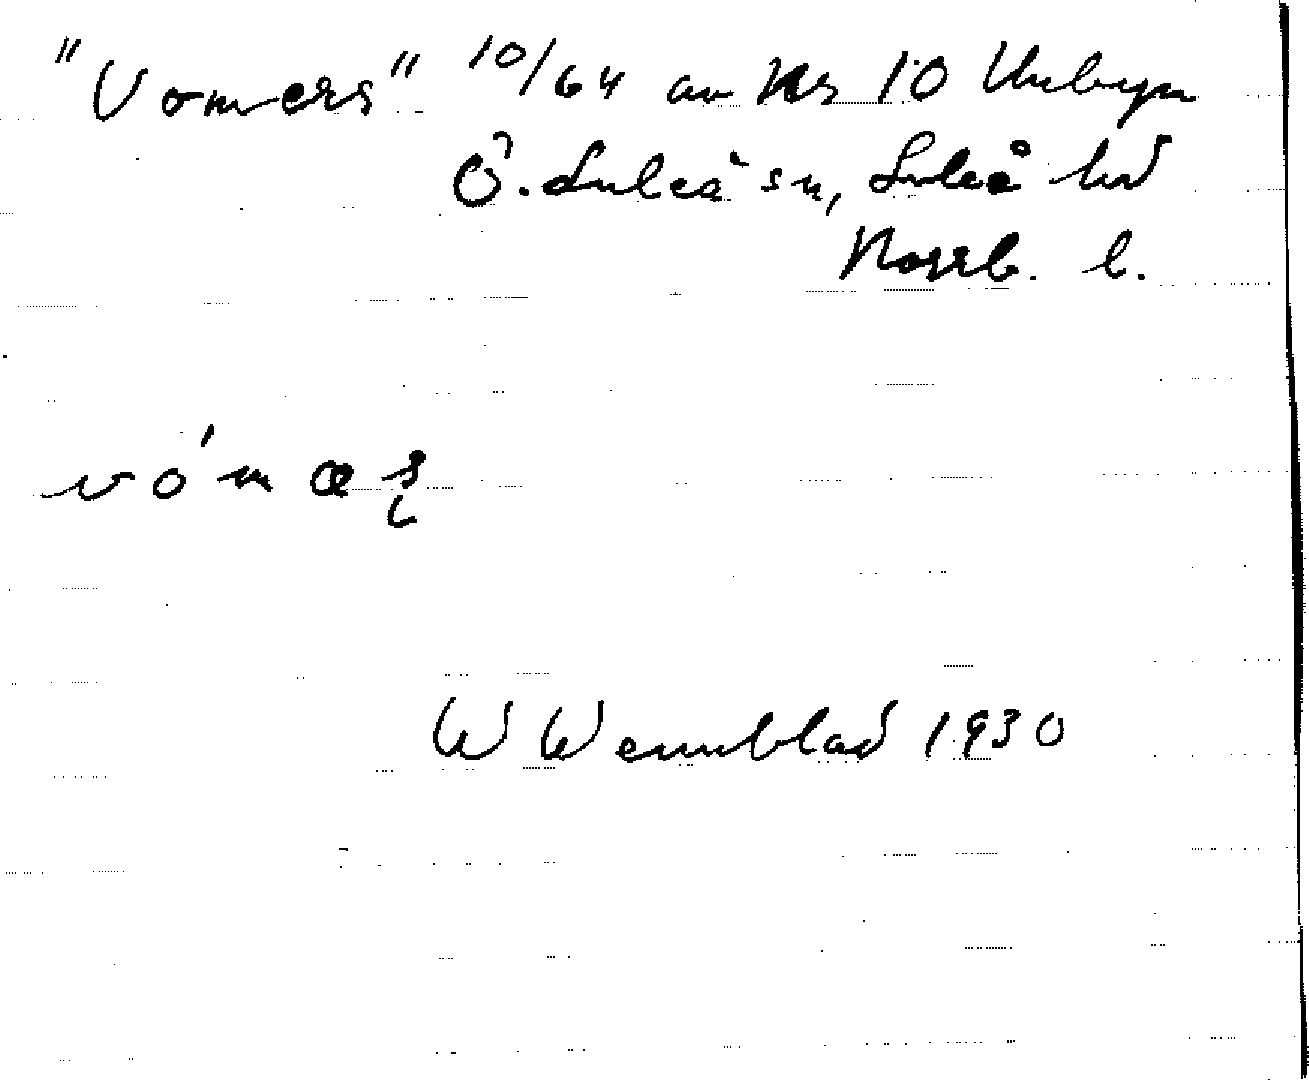 "Vomers" 10/64 av Nr 10 Unbyn
Ö. Luleå sn, Luleå tnd
Norrb. l.
vo'mæʂ
W Wennblad 1930